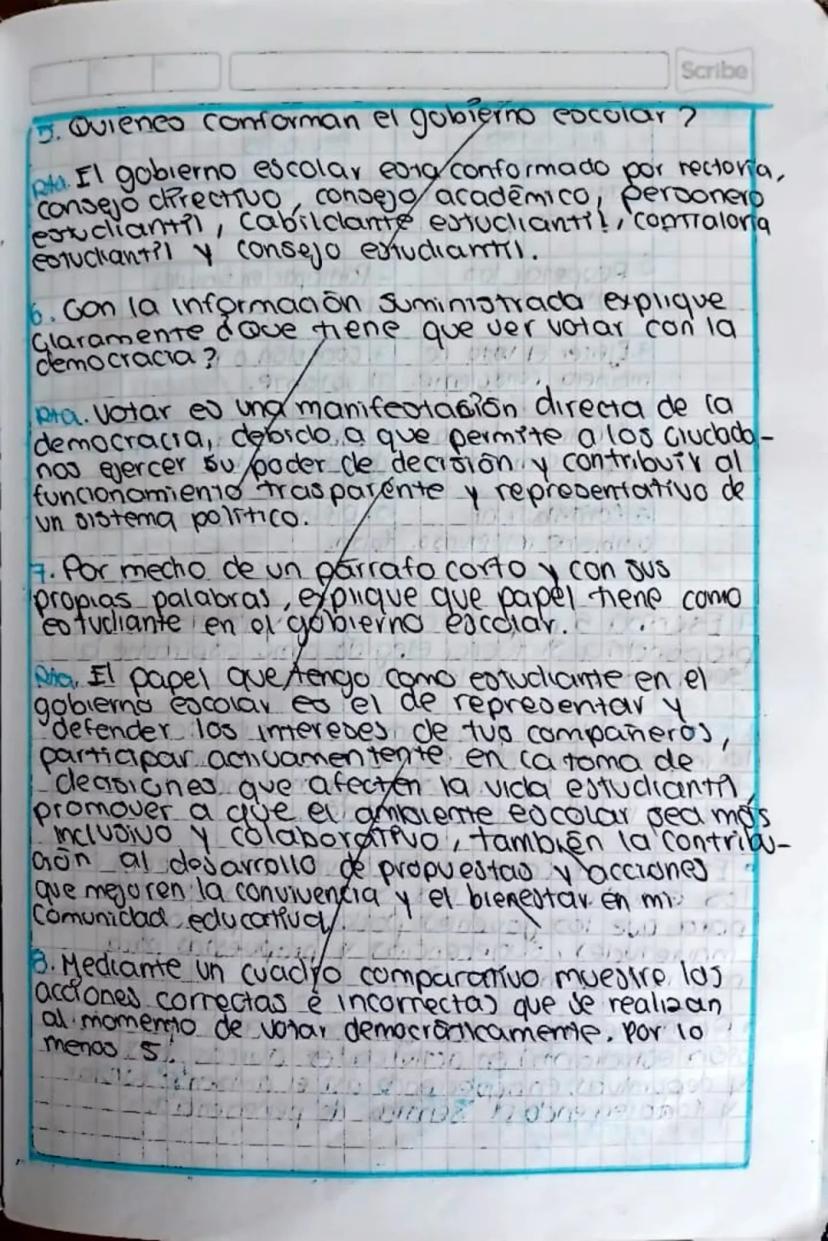 Scribe
5. Quienes conforman el gobierno escolar?
Rta. El gobierno escolar esta conformado por rectoría,
consejo directivo, consejo académico, personero
estudiantil, cabildante estudiantil, contraloria
estudiantil y consejo estudiantil.
6. Con la información suministrada explique
claramente ¿que tiene que ver votar con la
democracia?
Rta. Votar es una manifestación directa de la
democracia, debido a que permite a los ciudada-
nos ejercer su poder de decisión y contribuir al
funcionamiento trasparente y representativo de
un sistema político.
7. Por medio de un párrafo corto y con sus
propias palabras, explique que papel tiene como
estudiante en el gobierno escolar.
Rta. El papel que tengo como estudiante en el
gobierno escolar es el de representar y
defender los intereses de tus compañeros,
participar activamentente en la toma de
decisiones que afecten la vida estudiantil,
promover a que el ambiente escolar sea más
inclusivo y colaborativo, también la contribu-
ción al desarrollo de propuestas y acciones
que mejoren la convivencia y el bienestar en mi
comunidad educativa.
8. Mediante un cuadro comparativo muestre las
acciones correctas e incorrectas que se realizan
al momento de votar democráticamente. Por lo
menos 5.